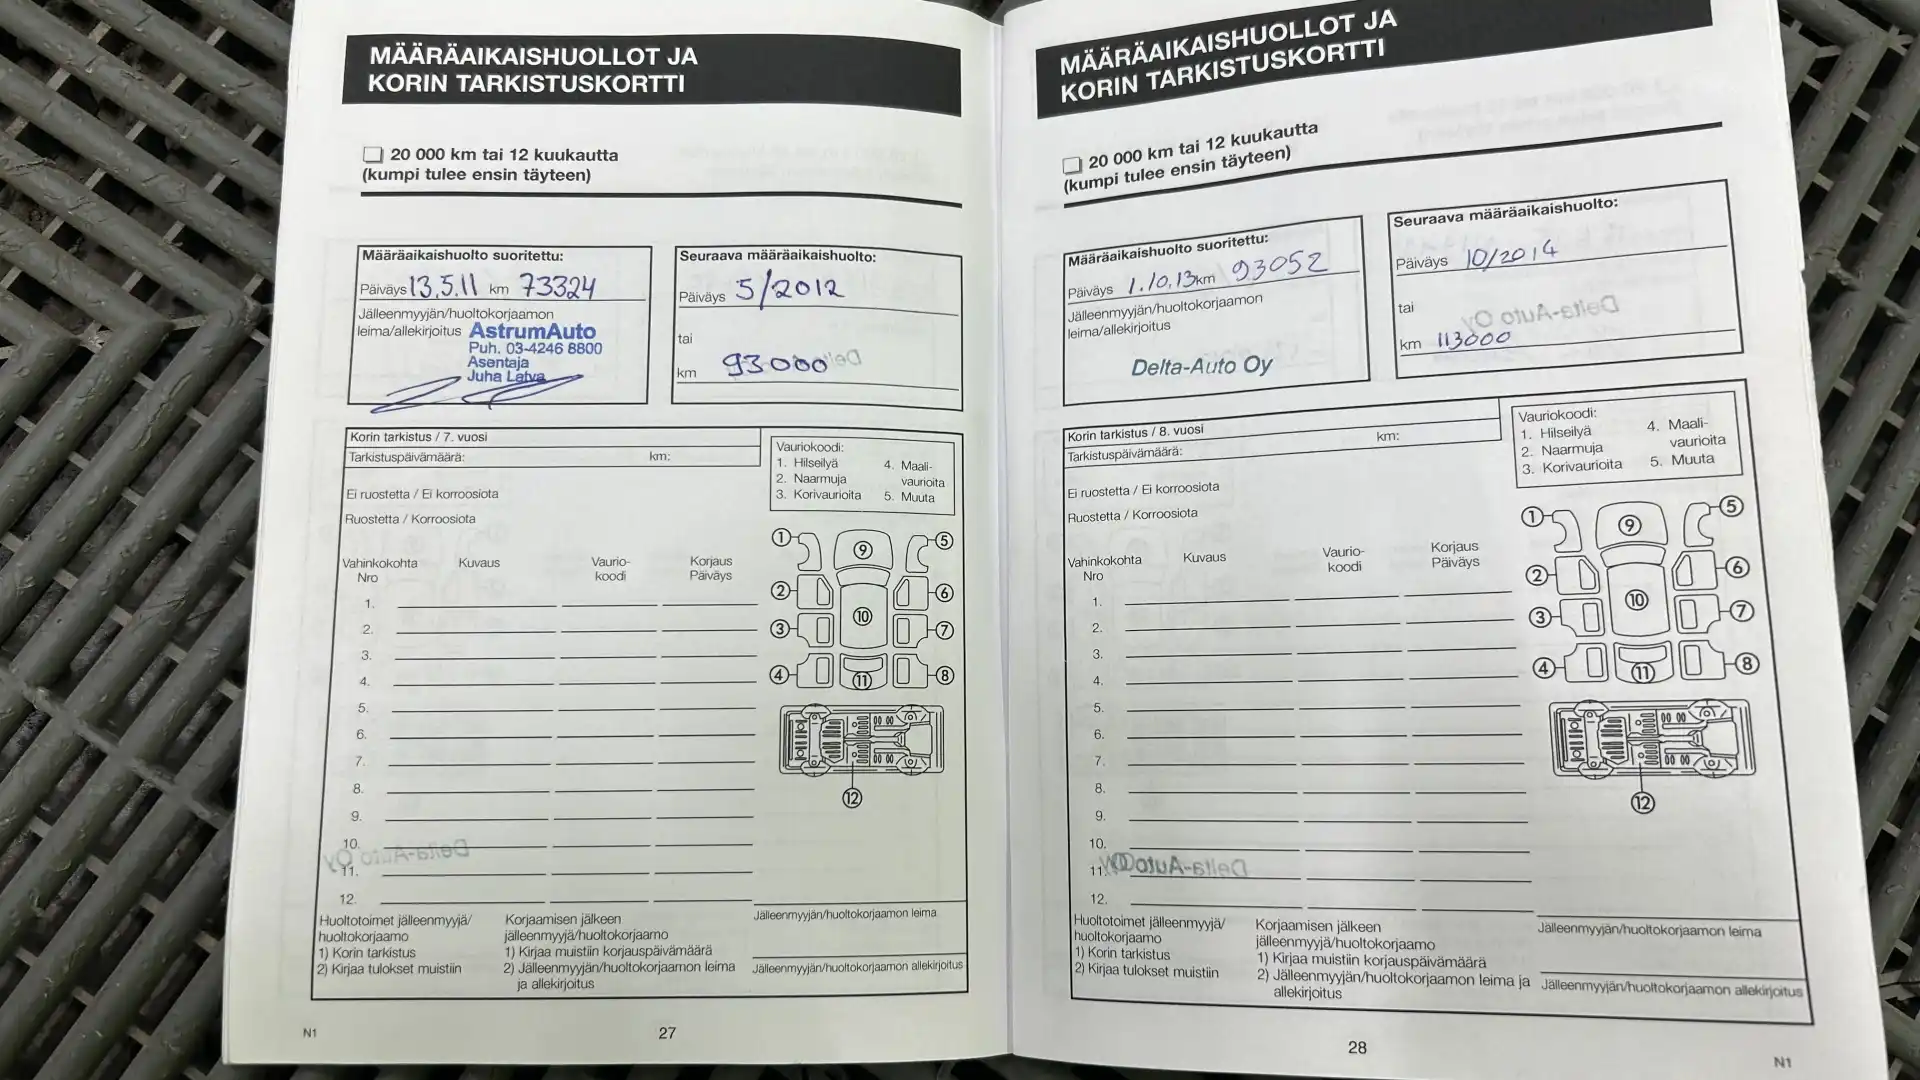 MÄÄRÄAIKAISHUOLLOT JA
KORIN TARKISTUSKORTTI
20 000 km tai 12 kuukautta
(kumpi tulee ensin täyteen)
Määräaikaishuolto suoritettu:
Päiväys 13.5.11 km 73324
Jälleenmyyjän/huoltokorjaamon
leima/allekirjoitus AstrumAuto
Puh. 03-4246 8800
Asentaja
Juha Latva
Seuraava määräaikaishuolto:
Päiväys 5/2012
tai
km 93000
Korin tarkistus / 7. vuosi
Tarkistuspäivämäärä: km:
Ei ruostetta / Ei korroosiota
Ruostetta / Korroosiota
Vauriokoodi:
1. Hilseilyä
2. Naarmuja
3. Korivaurioita
4. Maali-
vaurioita
5. Muuta
Vahinkokohta Kuvaus Vaurio- Korjaus
Nro koodi Päiväys
1.
2.
3.
4.
5.
6.
7.
8.
9.
10.
11.
12.
1 5
9
2 6
10
3 7
4 11 8
12
Delta-Auto Oy
Huoltotoimet jälleenmyyjä/
huoltokorjaamo
1) Korin tarkistus
2) Kirjaa tulokset muistiin
Korjaamisen jälkeen
jälleenmyyjä/huoltokorjaamo
1) Kirjaa muistiin korjauspäivämäärä
2) Jälleenmyyjän/huoltokorjaamon leima
ja allekirjoitus
Jälleenmyyjän/huoltokorjaamon leima
Jälleenmyyjän/huoltokorjaamon allekirjoitus
N1
27
MÄÄRÄAIKAISHUOLLOT JA
KORIN TARKISTUSKORTTI
20 000 km tai 12 kuukautta
(kumpi tulee ensin täyteen)
Määräaikaishuolto suoritettu:
Päiväys 1.10.13 km 93052
Jälleenmyyjän/huoltokorjaamon
leima/allekirjoitus
Delta-Auto Oy
Seuraava määräaikaishuolto:
Päiväys 10/2014
tai
Delta-Auto Oy
km 113000
Korin tarkistus / 8. vuosi
Tarkistuspäivämäärä: km:
Ei ruostetta / Ei korroosiota
Ruostetta / Korroosiota
Vauriokoodi:
1. Hilseilyä
2. Naarmuja
3. Korivaurioita
4. Maali-
vaurioita
5. Muuta
Vahinkokohta Kuvaus Vaurio- Korjaus
Nro koodi Päiväys
1.
2.
3.
4.
5.
6.
7.
8.
9.
10.
11.
12.
1 5
9
2 6
10
3 7
4 11 8
12
Delta-Auto Oy
Huoltotoimet jälleenmyyjä/
huoltokorjaamo
1) Korin tarkistus
2) Kirjaa tulokset muistiin
Korjaamisen jälkeen
jälleenmyyjä/huoltokorjaamo
1) Kirjaa muistiin korjauspäivämäärä
2) Jälleenmyyjän/huoltokorjaamon leima ja
allekirjoitus
Jälleenmyyjän/huoltokorjaamon leima
Jälleenmyyjän/huoltokorjaamon allekirjoitus
28
N1